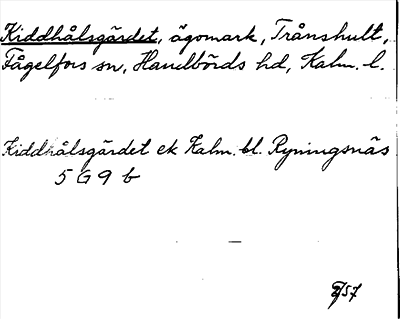 Kiddhålsgärdet, ägomark, Trånshult,
Fågelfors sn, Handbörds hd, Kalm. l.
Kiddhålsgärdet ek Kalm. bl. Ryningsnäs
5 G 9 b